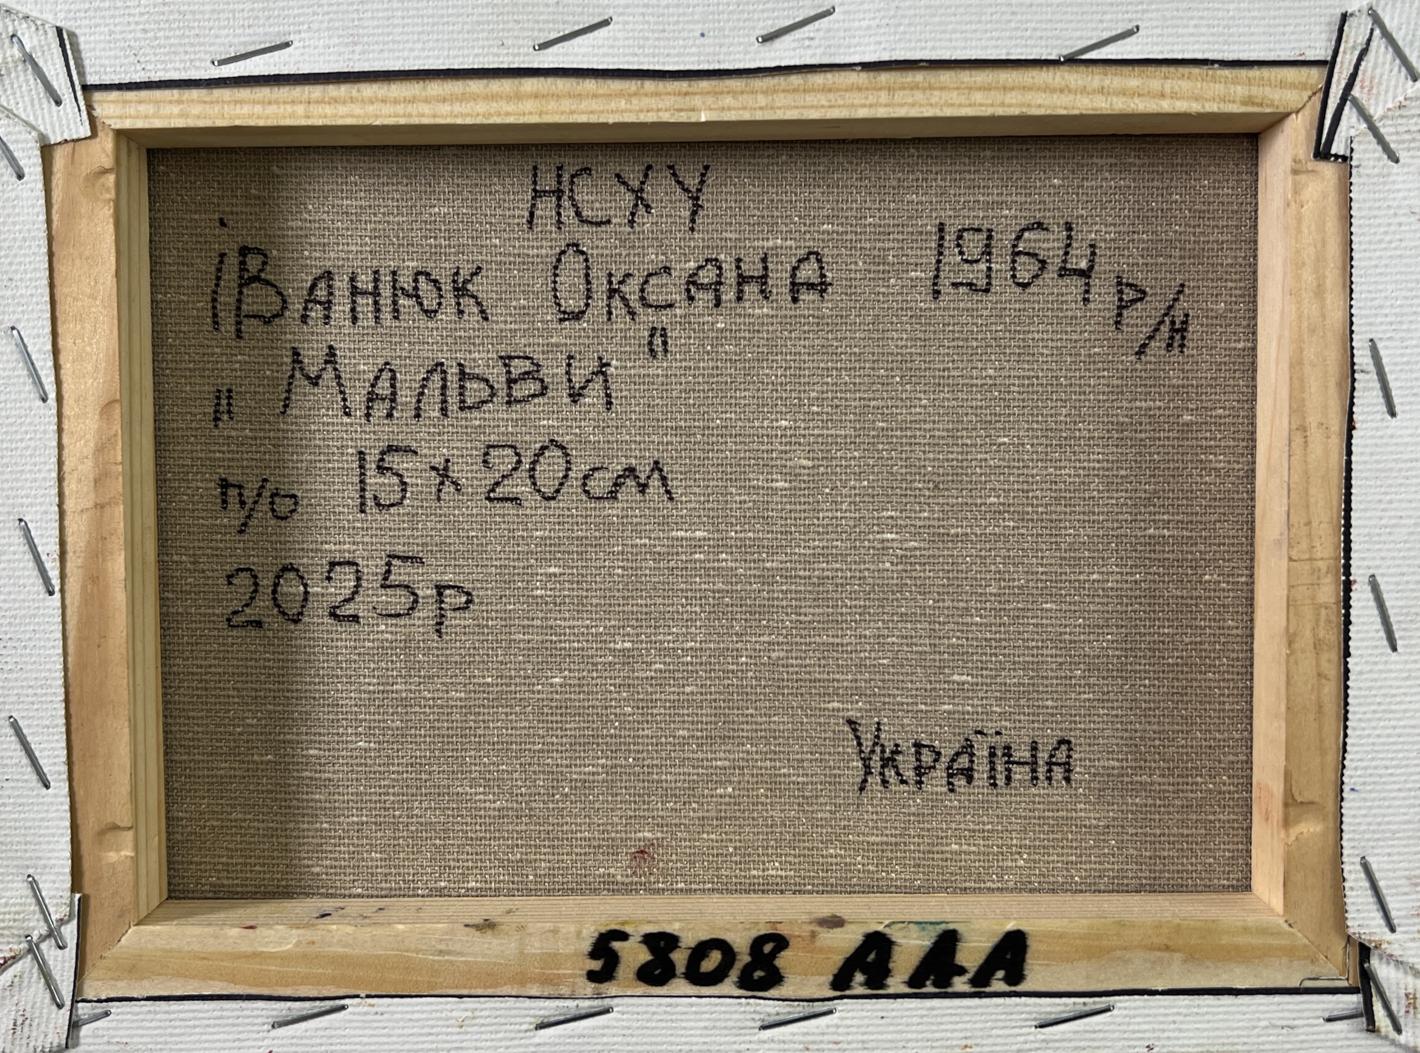 НСХУ
іВанюк Оксана 1964 р/н
„Мальви"
п/о 15х20см
2025р
Україна
5808 ААА